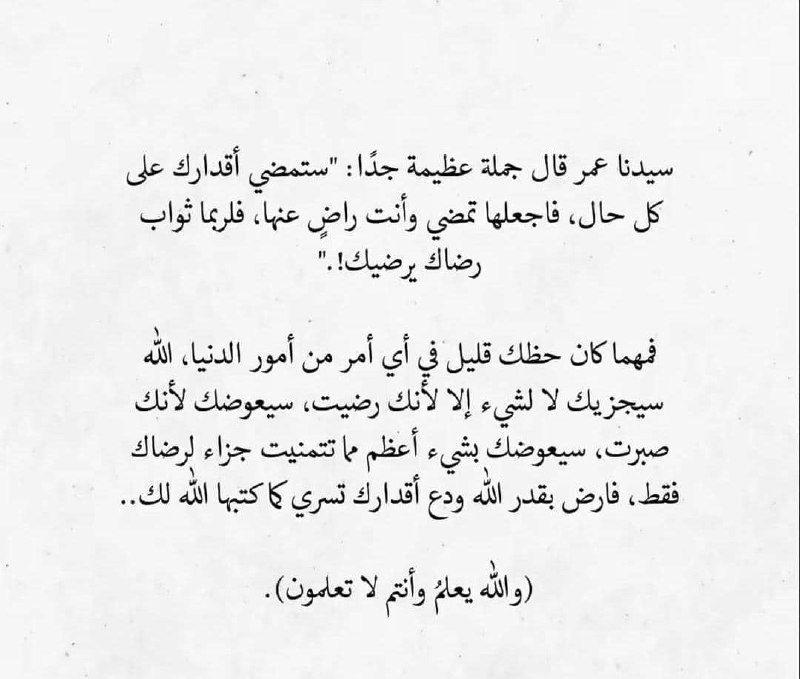 سيدنا عمر قال جملة عظيمة جدًا: "ستمضي أقدارك على
كل حال، فاجعلها تمضي وأنت راضٍ عنها، فلربما ثواب
رضاك يرضيك!."
فمهما كان حظك قليل في أي أمر من أمور الدنيا، الله
سيجزيك لا لشيء إلا لأنك رضيت، سيعوضك لأنك
صبرت، سيعوضك بشيء أعظم مما تتمنيت جزاء لرضاك
فقط، فارض بقدر الله ودع أقدارك تسري كما كتبها الله لك..
(والله يعلمُ وأنتم لا تعلمون).